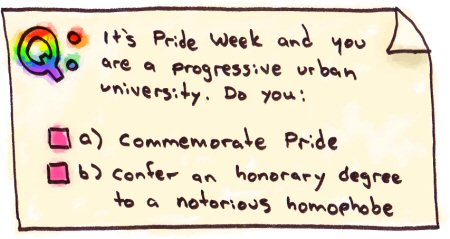 Q: It's Pride Week and you
are a progressive urban
university. Do you:
a) Commemorate Pride
b) Confer an honorary degree
to a notorious homophobe